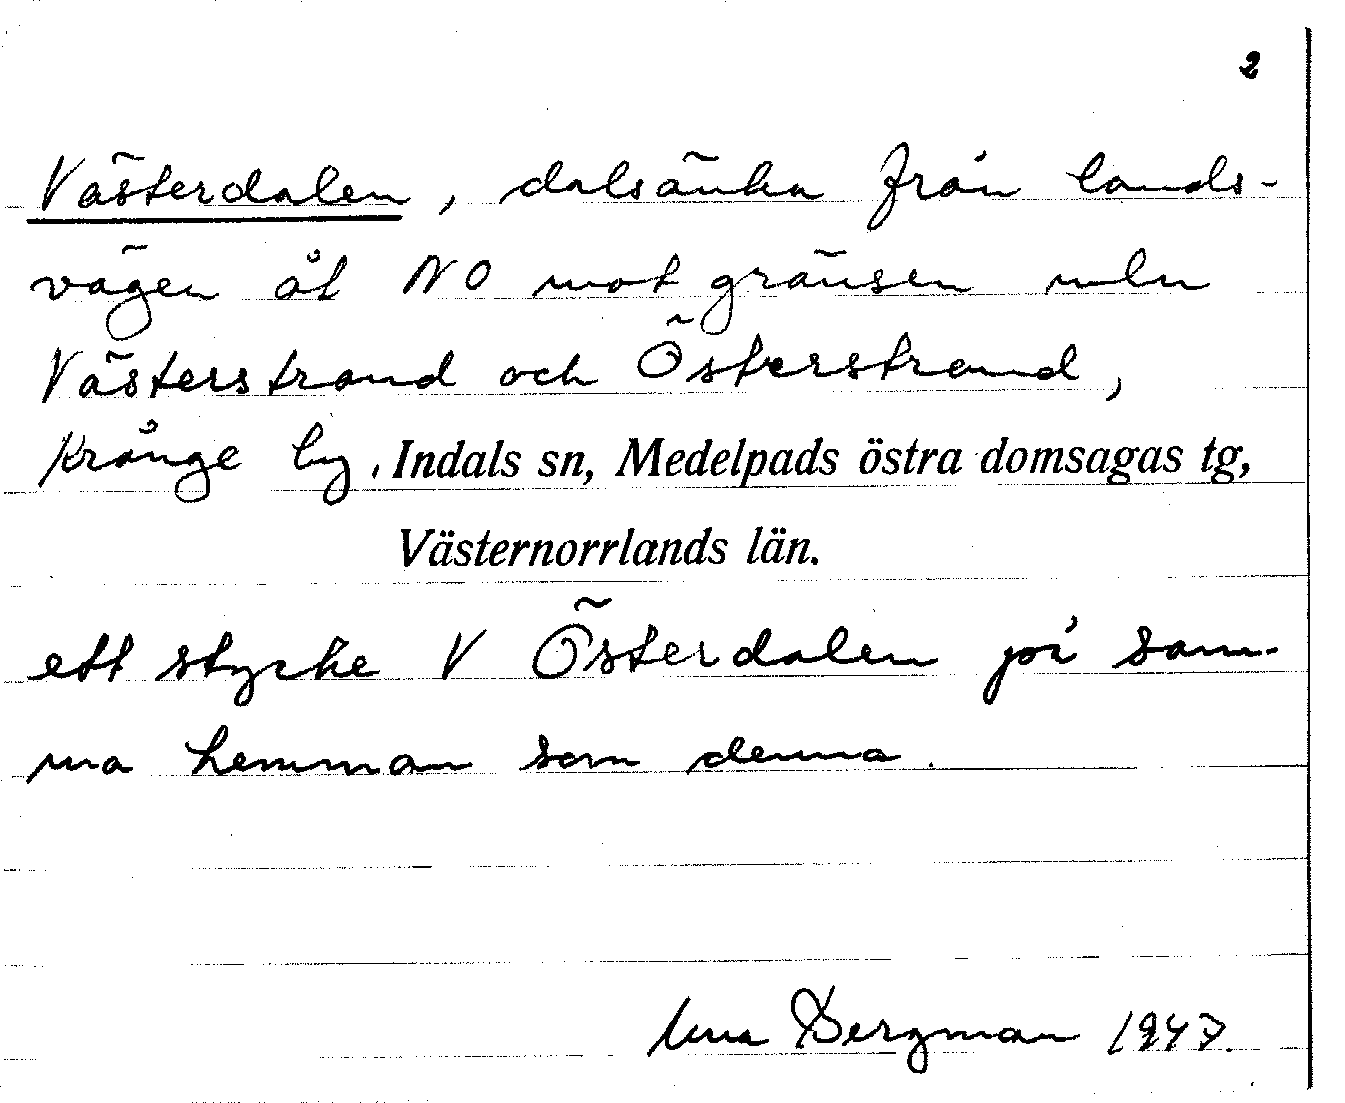 2
Västerdalen, dalsänka från lands-
vägen åt NO mot gränsen mln
Västerstrand och Österstrand,
Krånge by, Indals sn, Medelpads östra domsagas tg,
Västernorrlands län.
ett stycke V Österdalen på sam-
ma hemman som denna.
Bergman 1947.